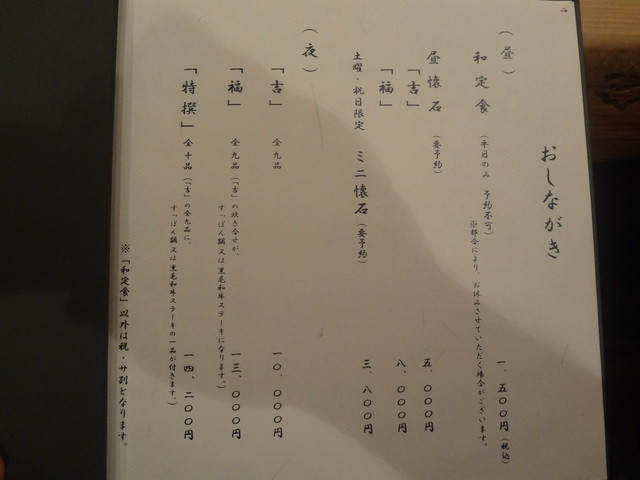 おしながき
（昼）
和定食（平日のみ 予約不可） 一、五〇〇円（税込）
※都合により、お休みさせていただく場合がございます。
昼懐石（要予約）
「吉」 五、〇〇〇円
「福」 八、〇〇〇円
土曜・祝日限定 ミニ懐石（要予約） 三、八〇〇円
（夜）
「吉」 全九品 一〇、〇〇〇円
「福」 全九品（「吉」の炊き合せが、 一三、〇〇〇円
すっぽん鍋又は黒毛和牛ステーキになります。）
「特撰」 全十品（「吉」の全九品に、 一四、二〇〇円
すっぽん鍋又は黒毛和牛ステーキの一品が付きます。）
※「和定食」以外は税・サ別となります。